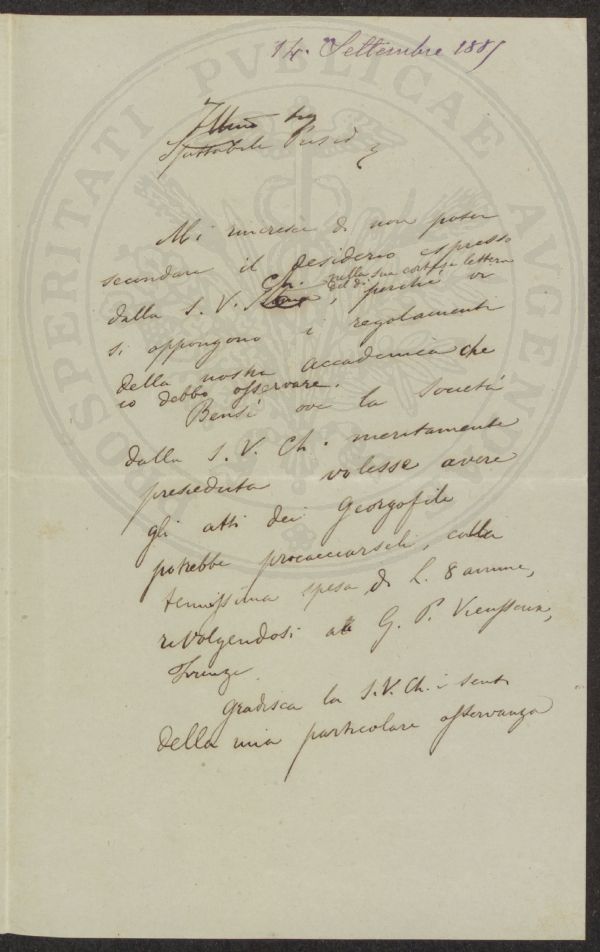 14. Settembre 1885
Illmo Sig
Spettabile Presid
Mi rincresce di non poter
secondare il desiderio espresso
nella sua cortese lettera
dalla S. V. Ch. del di, perché vi
si oppongono i regolamenti
della nostra Accademia che
io debbo osservare.
Bensì ove la Società
dalla S. V. Ch. meritamente
presieduta volesse avere
gli atti dei Georgofili
potrebbe procacciarseli, colla
tenuissima spesa di L. 8 annue,
rivolgendosi al G. P. Vieusseux,
Firenze.
Gradisca la S. V. Ch. i sensi
della mia particolare osservanza
PROSPERITATI PVBLICAE AVGENDAE